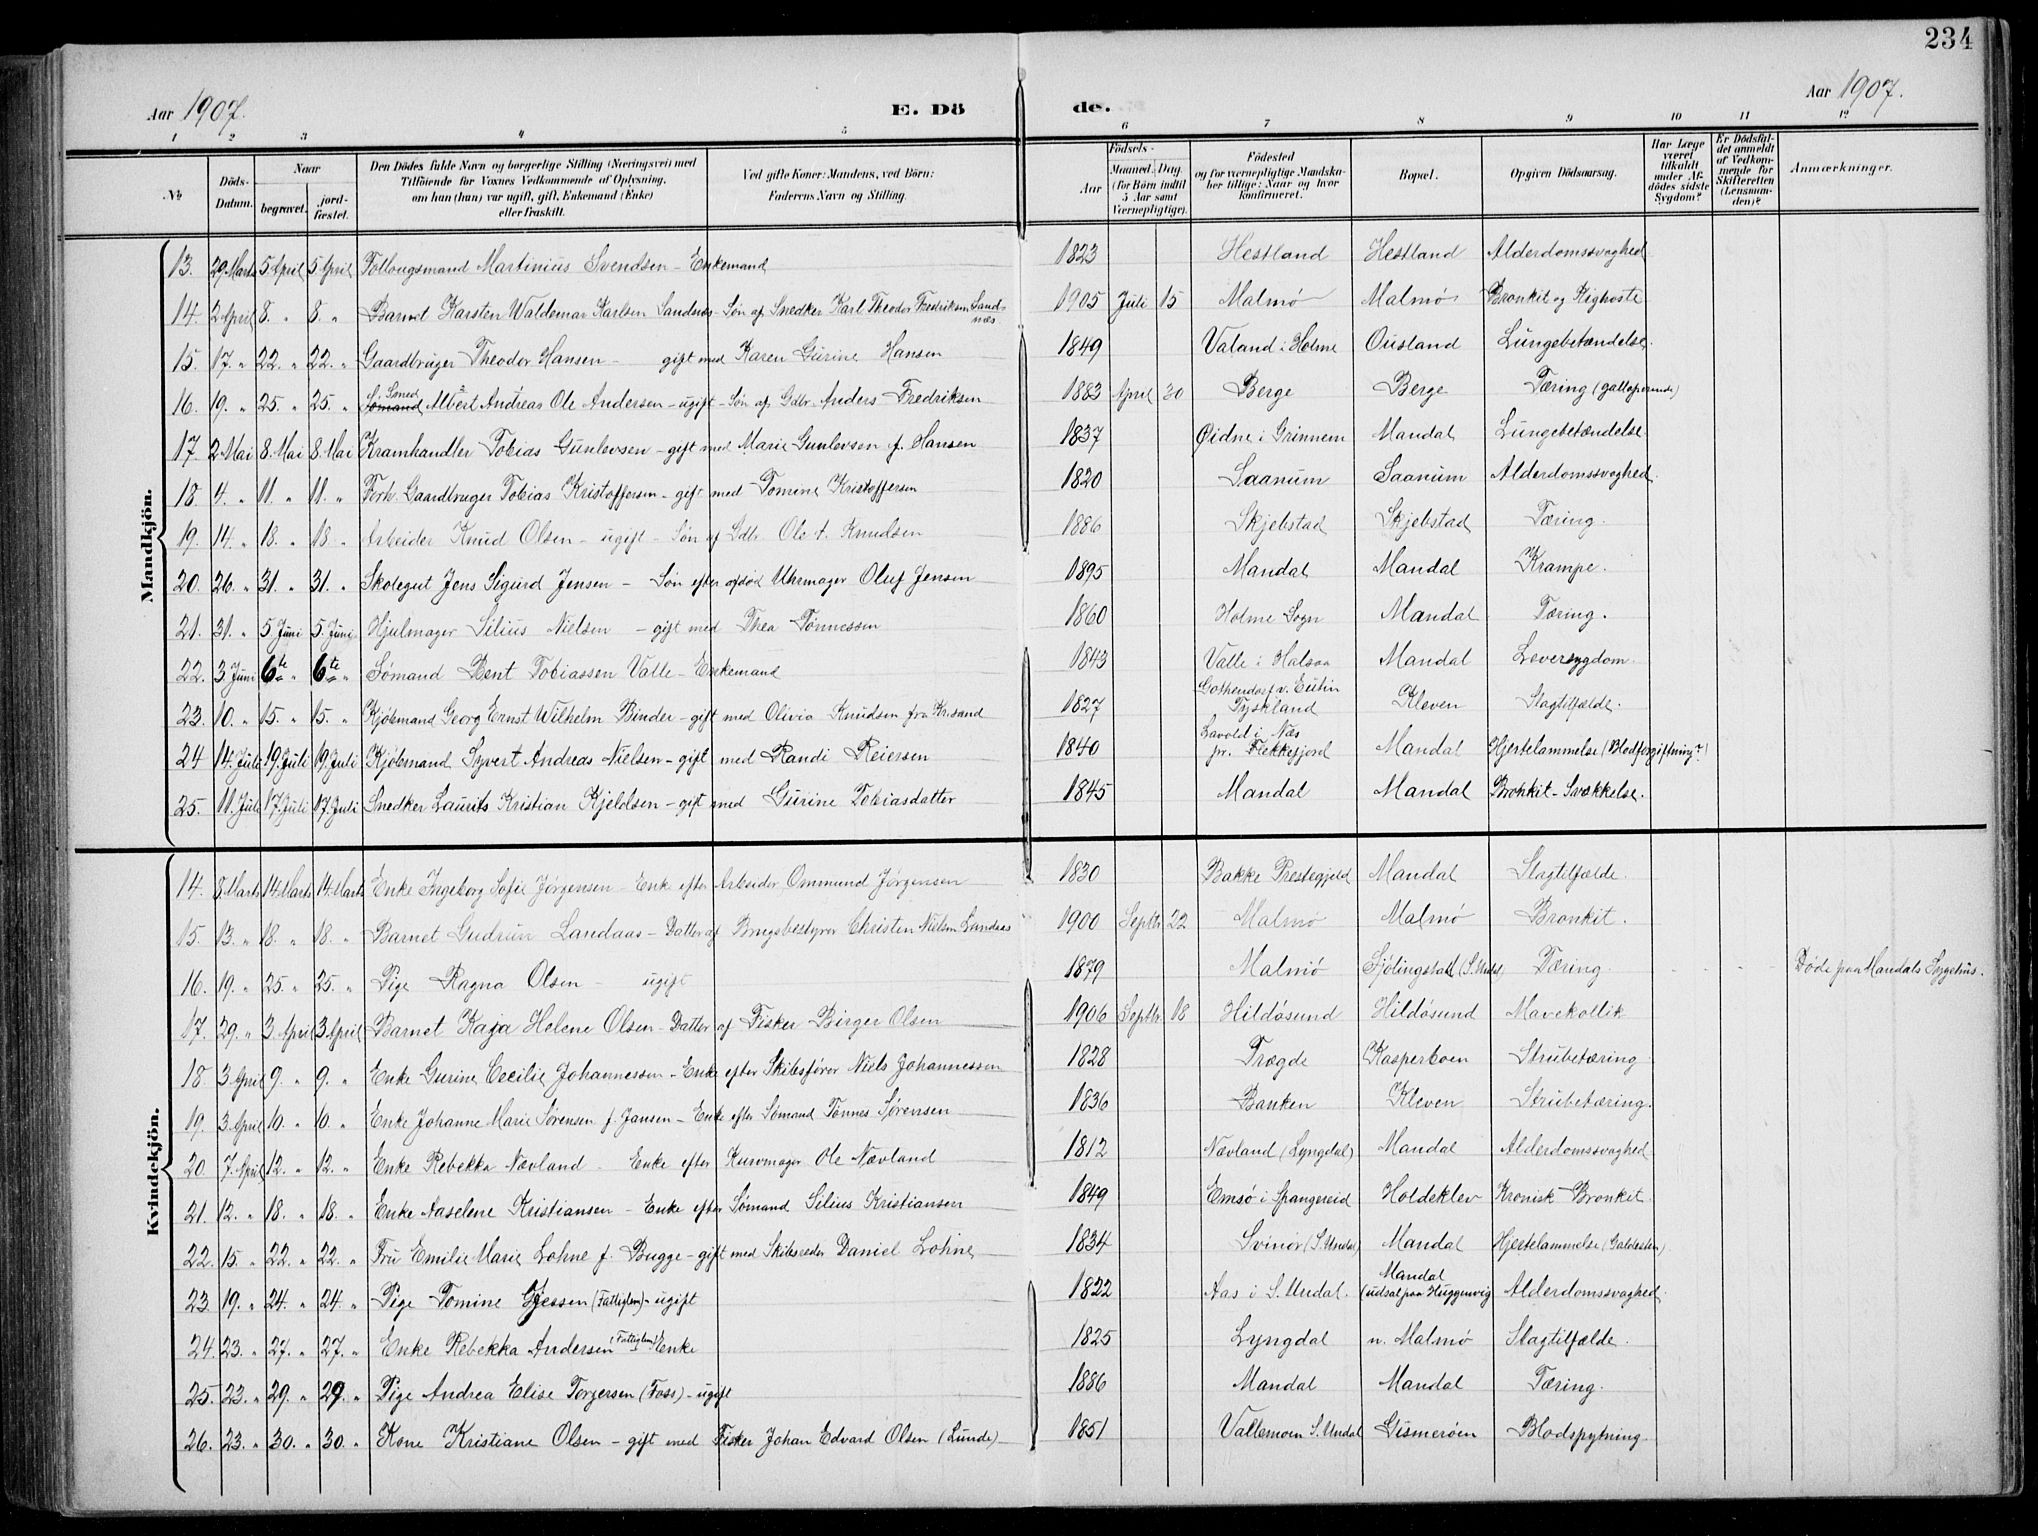 234
Aar 1907.
E. Dö de.
Aar 1907.
1 2 3 4 5 6 7 8 9 10 11 12
No
Döds-Datum.
Naar
begravet. jord-fæstet.
Den Dödes fulde Navn og borgerlige Stilling (Næringsvei) med
Tilföiende for Voxnes Vedkommende af Oplysning,
om hun (han) var ugift, gift, Enkemand (Enke)
eller fraskilt.
Ved gifte Koner: Mandens, ved Börn:
Faderens Navn og Stilling.
Födsels-
Aar Maaned. Dag.
(for Börn indtil 5 Aar samt Værnepligtige).
Födested
og for værnepligtige Mandska-
ber tillige: Naar og hvor
konfirmeret.
Bopæl.
Opgiven Dödsaarsag.
Har Læge været tilkaldt under Af-dödes sidste Sygdom?
Er Dödsfal-det anmeldt af Vedkom-mende for Skifteretten (Lensman-den)?
Anmærkninger.
Mandkjön.
13. 29. Marts 5 April 5 April Follougsmand Martinius Svendsen - Enkemand 1823 Hestland Hestland Alderdomssvaghed
14. 2 April 8. " 8. " Barnet Karsten Waldemar Karlsen Sandnæs - Søn af Snedker Karl Theodor Fredriksen Sandnæs 1905 Juli 15 Malmø Malmø Bronkit og Kighoste
15. 17. " 22. " 22. " Gaardbruger Theodor Hansen - gift med Karen Gurine Hansen 1849 Valand i Holme Ousland Lungebetændelse.
16. 19. " 25. " 25. " Sømand Smed Albert Andreas Ole Andersen - ugift - Søn af Gdbr. Anders Fredriksen 1883 April 30 Berge Berge Tæring (galloperende)
17. 2 Mai 8. Mai 8. Mai Kramhandler Tobias Gunlevsen - gift med Marie Gunlevsen f. Hansen 1837 Øidne i Grinnem Mandal Lungebetændelse
18. 4. " 11. " 11. " Forh. Gaardbruger Tobias Kristoffersen - gift med Tomine Kristoffersen 1820 Saanum Saanum Alderdomssvaghed.
19. 14. " 18. " 18. " Arbeider Knud Olsen - ugift - Søn af Gdbr. Ole A. Knudsen 1886 Skjebstad Skjebstad Tæring.
20. 26. " 31. " 31. " Skolegut Jens Sigurd Jensen - Søn efter afdød Uhrmager Oluf Jensen 1895 Mandal Mandal Krampe.
21. 31. " 5 Juni 5. Juni Hjulmager Silius Nielsen - gift med Thea Tønnessen 1860 Holme Sogn Mandal Tæring.
22. 3. Juni 6te " 6te " Sømand Bent Tobiassen Valle - Enkemand 1843 Valle i Halsaa Mandal Leversygdom.
23. 10. " 15. " 15. " Kjøbmand Georg Ernst Wilhelm Binder - gift med Olivia Knudsen fra Krisand 1827 Gothendorf v. Eutin Tyskland Kleven Slagtilfælde.
24 14. Juli 19. Juli 19. Juli Kjøbmand Syvert Andreas Nielsen - gift med Randi Reiersen 1840 Lavold i Næs pr. Flekkefjord Mandal Hjertelammelse (Blodforgiftning?)
25. 11. Juli 17. Juli 17. Juli Snedker Laurits Kristian Kjeldsen - gift med Gurine Tobiasdatter 1845 Mandal Mandal Bronkit - Svækkelse.
Kvindekjön.
14. 8. Marts 14. Marts 14. Marts Enke Ingeborg Sofie Jørgensen - Enke efter Arbeider Ommund Jørgensen 1830 Bakke Prestegjeld Mandal Slagtilfælde.
15. 13. " 18. " 18. " Barnet Gudrun Landaas - Datter af Brugsbestyrer Christen Nielsen Landaas 1900 Septbr. 22 Malmø Malmø Bronkit.
16. 19. " 25. " 25. " Pige Ragna Olsen - ugift 1879 Malmø Sjölingstad (S. Undal) Tæring. Døde paa Mandals Sygehus.
17. 29. " 3. April 3. April Barnet Kaja Helene Olsen - Datter af Fisker Birger Olsen 1906 Septbr. 18 Hildøsund Hildøsund Mavekollik
18 3. April 9. " 9. " Enke Gurine Cecilie Johannessen - Enke efter Skibsfører Niels Johannessen 1828 Trægde Kasperboen Strubetæring
19. 3. April 10. " 10. " Enke Johanne Marie Sørensen f. Jansen - Enke efter Sømand Tønnes Sørensen 1836 Banken Kleven Strubetæring.
20. 7. April 12. " 12. " Enke Rebekka Nævland - Enke efter Kurvmager Ole Nævland 1812 Nævland (Lyngdal) Mandal Alderdomssvaghed
21. 12. " 18. " 18. " Enke Aaselene Kristiansen - Enke efter Sømand Silius Kristiansen 1849 Emsø i Spangereid Holdeklev Kronisk Bronkit.
22. 15. " 22. " 22. " Fru Emilie Marie Lohne f. Bugge - gift med Skibsreder Daniel Lohne 1834 Svinør (S. Undal) Mandal Hjertelammelse (Galdesten)
23. 19. " 24. " 24. " Pige Tomine Gjessen (Fattiglem) - ugift 1822 Aas i S. Undal. Mandal (udsat paa Huggenvig Alderdomssvaghed.
24. 23. " 27. " 27. " Enke Rebekka Andersen (Fattiglem) Enke 1825 Lyngdal n. Malmø Slagtilfælde.
25. 23. " 29. " 29. " Pige Andrea Elise Torjersen (Foss) - ugift 1886 Mandal Mandal Tæring.
26. 23. " 30. " 30. " Kone Kristiane Olsen - gift med Fisker Johan Edvard Olsen (Lunde) - 1851 Vallemoen S. Undal Gismerøen Blodspytning